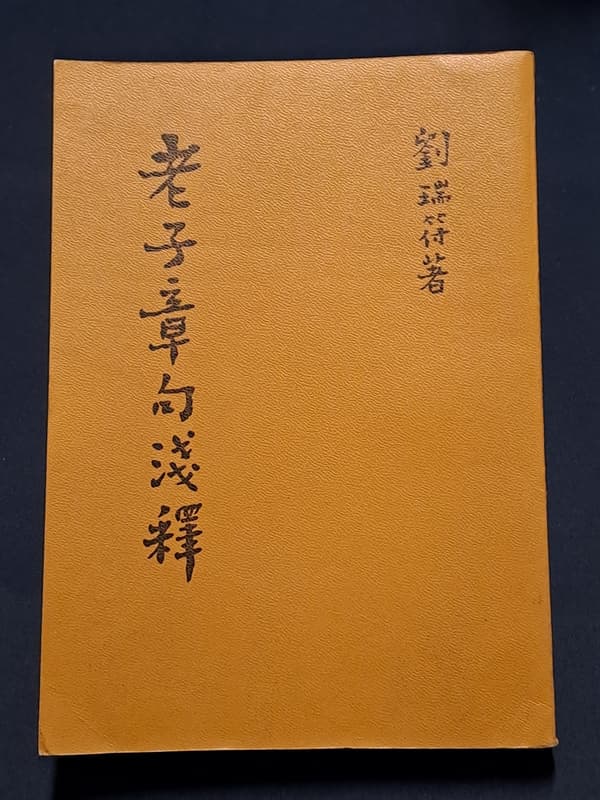 劉瑞符著
老子章句淺釋